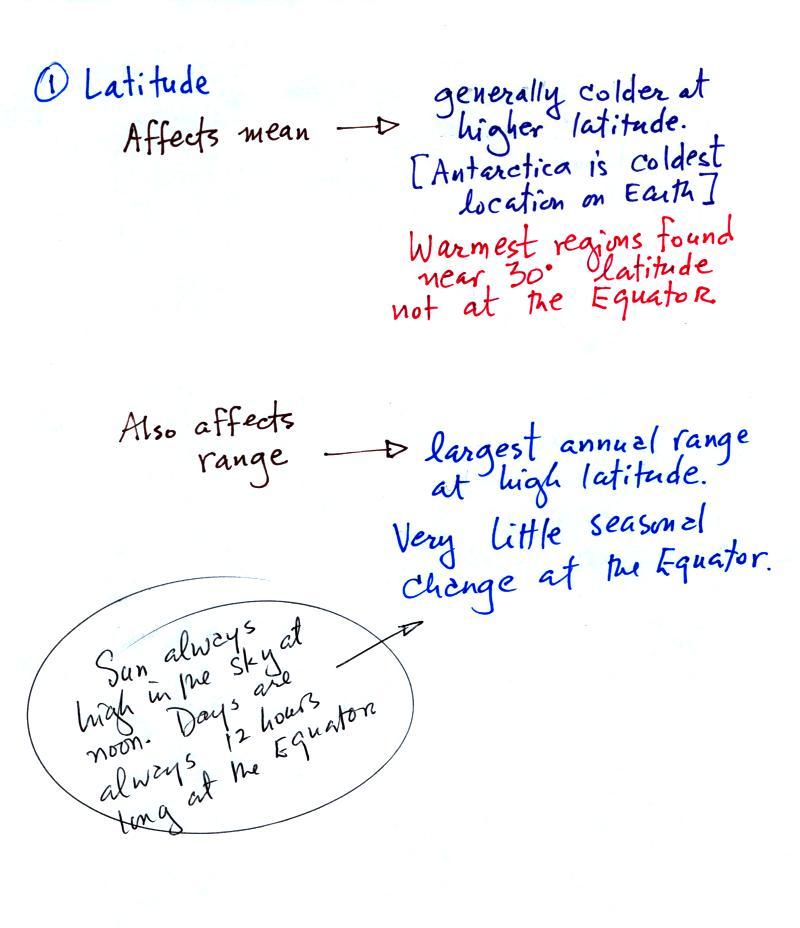 ① Latitude
Affects mean →
generally colder at
higher latitude.
[Antarctica is coldest
location on Earth]
Warmest regions found
near 30° latitude
not at the Equator
Also affects
range →
largest annual range
at high latitude.
Very little seasonal
change at the Equator.
Sun always
high in the sky at
noon. Days are
always 12 hours
long at the Equator